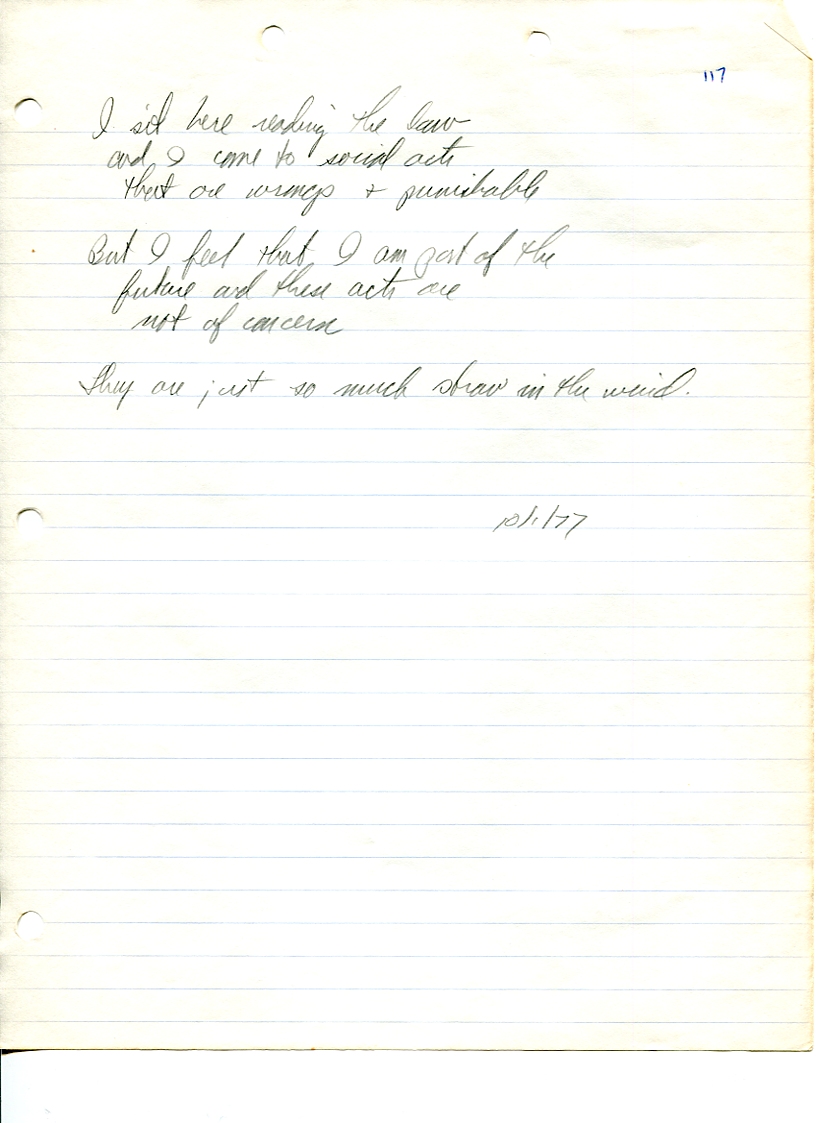 117
I sit here reading the law
and I come to social acts
that are wrongs + punishable
But I feel that I am part of the
future and these acts are
not of concern
They are just so much straw in the wind.
10/1/77